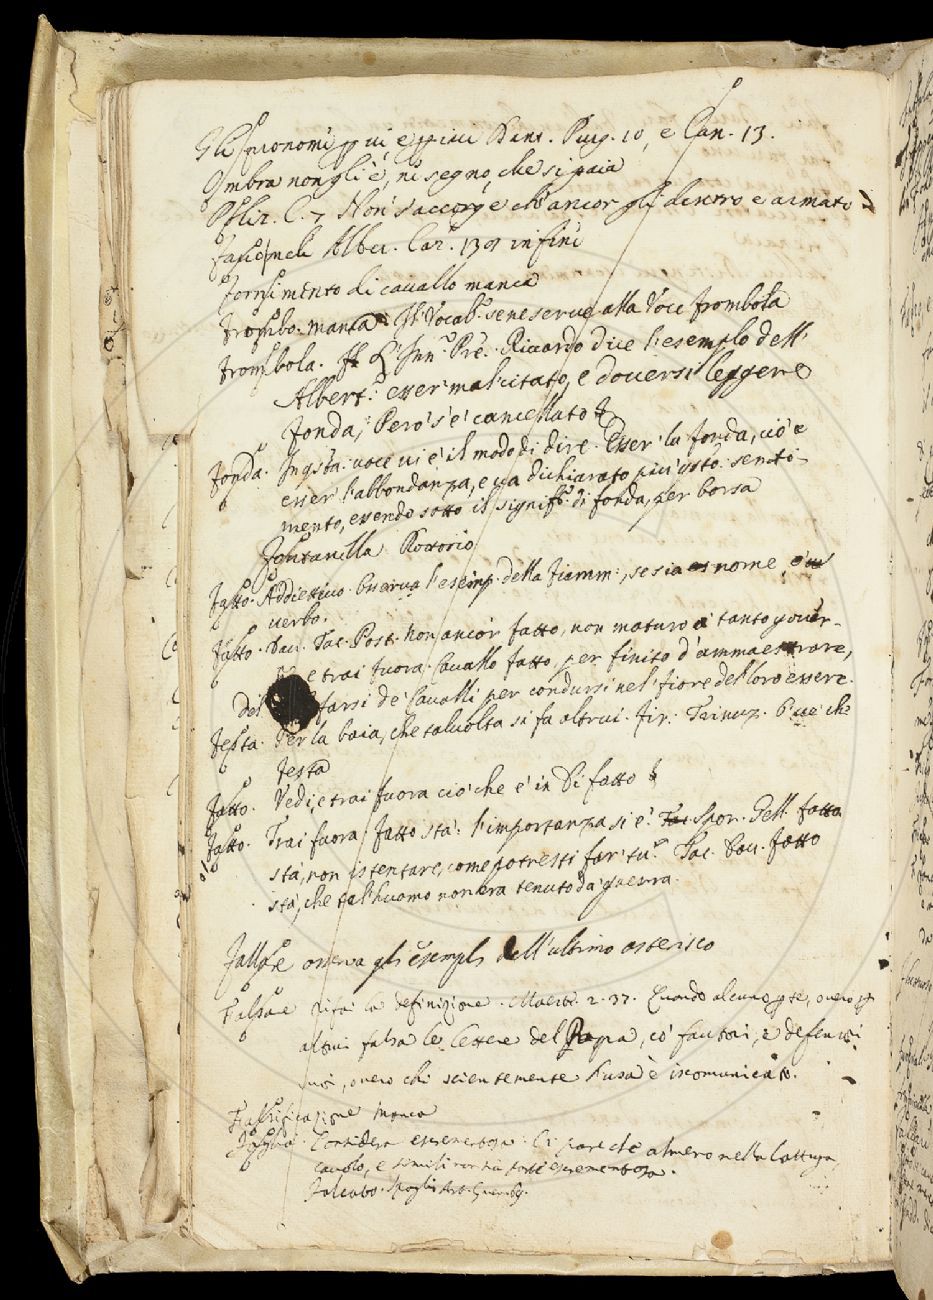 Gli pronomi qui e Dant. Purg. 10, e Can. 13.
Ombra non gli è, ne segno, che si paia
C. 7 Non s'accorge ch'ancor gli è dentro e armato
Alber. Car. 139 in fine
Fornimento di cavallo manca
Frombo. manca. Il Vocab.º se ne serve alla Voce frombola
Frombola. L'Inn.º Pre. Riccardo dice l'esemplo dell'
Albert.º esser mal citato, e doversi leggere
fonda, Però s'è cancellato
Fonda. In qsta voce vi è il modo di dire. Esser la fonda, ciò è
esser l'abbondanza, e va dichiarato più qsto senti-
mento, essendo sotto il signif.º di fonda, per borsa
Fontanella. Rottorio
Fatto. Addiettivo. Osserva l'esemp. della Fiamm., se sia nome, o
verbo.
Fatto. Dav. Tac. Post. Non ancor fatto, non maturo a tanto gover-
e trai fuora. Cavallo fatto, per finito d'ammaestrare,
del farsi de' Cavalli per condursi nel fiore del loro essere.
Festa. Per la baia, che talvolta si fa altrui. Fir. Trinuz. che
festa
Fatto. Vedi, e trai fuora ciò che è in Di fatto
Fatto. Trai fuora, fatto sta: l'importanza si è. Spor. Gell. fatto
sta, non istentare, come potresti far tu. Tac. Dav. fatto
sta, che tal'huomo non era tenuto da guerra.
Fallare osserva gli esempli dell'ultimo asterisco
Falsare Rifai la definizione. Maestr. 2. 37. Quando alcuno p se, overo p
altrui falsa le lettere del Papa, co' fautori, e defensori
suoi, overo chi scientemente l'usa è iscomunicato.
Falsificazione manca
Foglia. Considera escrementosa. Ci pare che almeno nella lattuga,
cavolo, e simili non sia parte escrementosa.